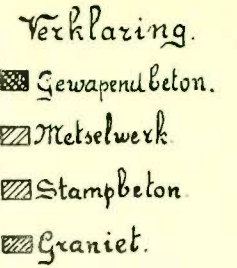 Verklaring.
Gewapendbeton.
Metselwerk
Stampbeton
Graniet.